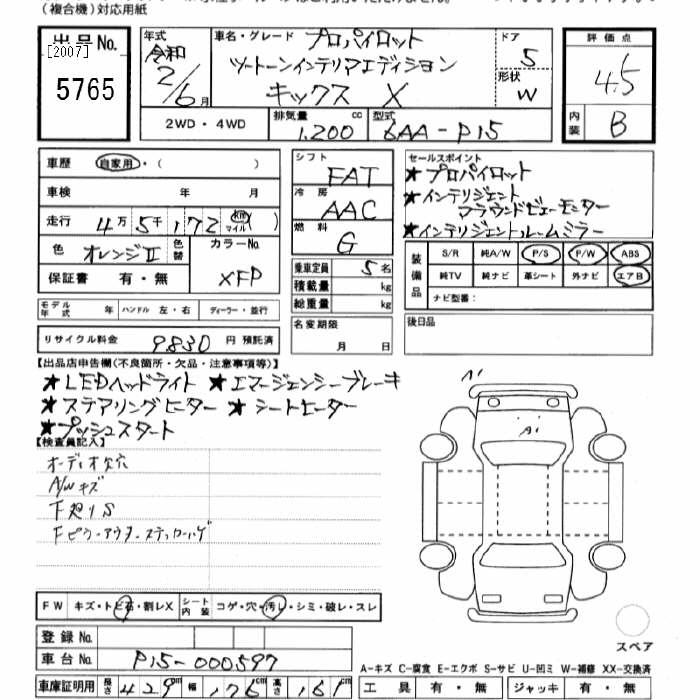 (複合機)対応用紙
出品No.
[2007]
5765
年式 令和 2/6月
車名・グレード プロパイロット
ツートーンインテリアエディション
キックス X
ドア 5
形状 W
評価点
4.5
内装 B
2WD・4WD
排気量 1.200 cc
型式 6AA-P15
車歴 自家用・( )
車検 年 月
走行 4万5千172 km マイル( )
色 オレンジⅡ 色替
カラーNo. XFP
保証書 有・無
モデル年式 ハンドル 左・右 ディーラー・並行
リサイクル料金 9830 円 預託済
シフト FAT
冷房 AAC
燃料 G
乗車定員 5名
積載量 kg
総重量 kg
名変期限
月 日
セールスポイント
★プロパイロット
★インテリジェント
アラウンドビューモニター
★インテリジェントルームミラー
装備品
S/R 純A/W P/S P/W ABS
純TV 純ナビ 革シート 外ナビ エアB
ナビ型番:
後日品
【出品店申告欄(不良箇所・欠品・注意事項等)】
★LEDヘッドライト ★エマージェンシーブレーキ
★ステアリングヒーター ★シートヒーター
★プッシュスタート
【検査員記入】
オーディオ欠穴
A/Wキズ
下廻りS
Fピラーアウターステッカーハゲ
A1
A1
FW キズ・トビ石・割レX シート内装 コゲ・穴・汚レ・シミ・破レ・スレ
登録No.
車台No. P15-000597
車庫証明用 長さ 429cm 幅 176cm 高さ 161cm
スペア
A−キズ C−腐食 E−エクボ S−サビ U−凹ミ W−補修 XX−交換済
工具 有・無 ジャッキ 有・無